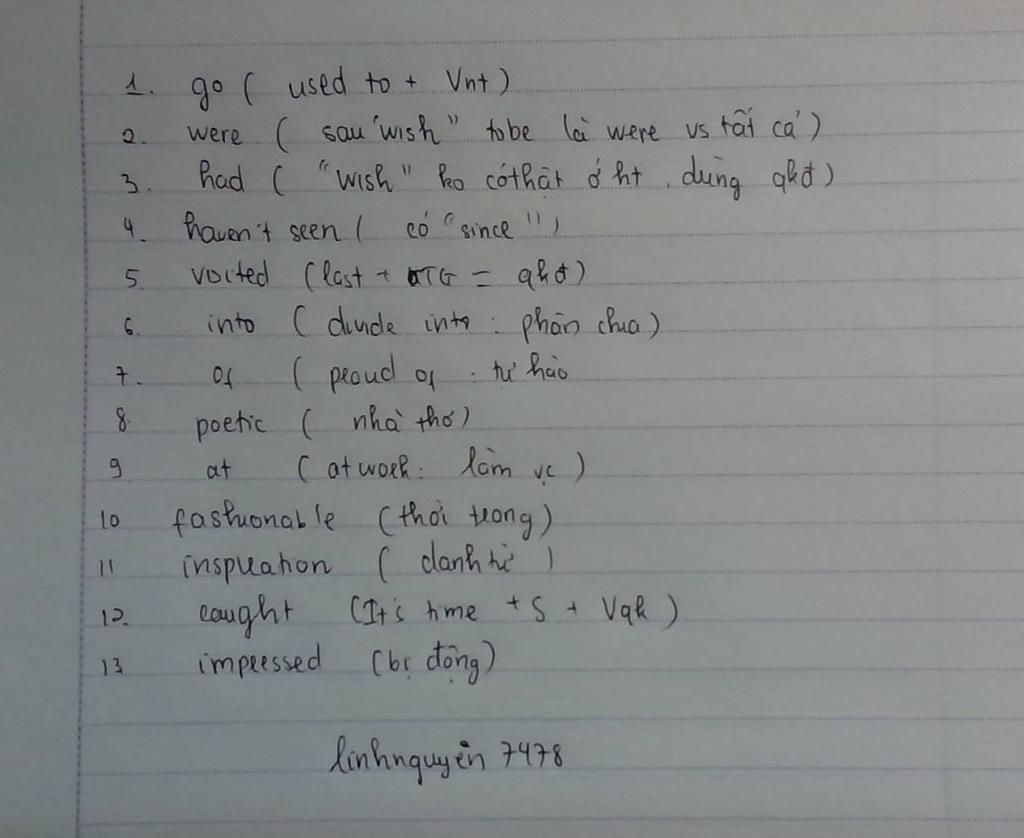 1. go ( used to + Vnt )
2. were ( sau "wish" tobe là were vs tất cả )
3. had ( "wish" ko có thật ở ht , dùng qkđ )
4. haven't seen ( có "since" )
5. visited (last + TG = qkđ)
6. into ( divide into : phân chia )
7. of ( proud of : tự hào
8. poetic ( nhà thơ )
9 at ( at work : làm vc )
10 fashionable (thời trang)
11 inspiration ( danh từ )
12. caught (It's time + S + Vqk )
13 impressed (bị động)
linhnguyên 7478